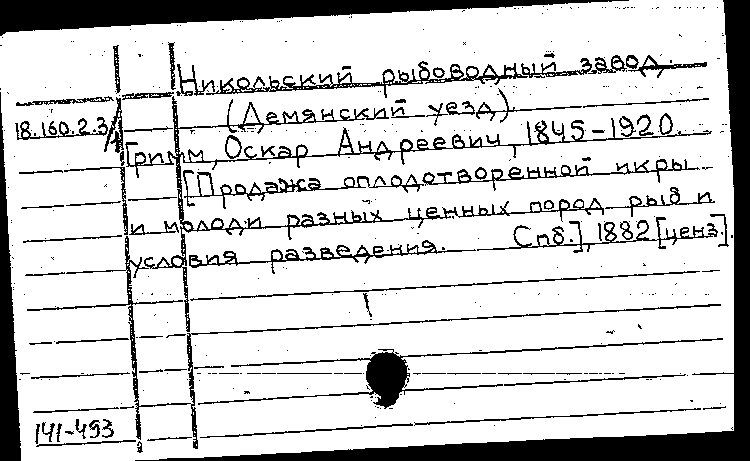 Никольский рыбоводный завод
(Демянский уезд)
18.160.2.3/
Гримм, Оскар Андреевич, 1845-1920.
[Продажа оплодотворенной икры
и молоди разных ценных пород рыб и
условия разведения. Спб.], 1882 [ценз.].
141-493